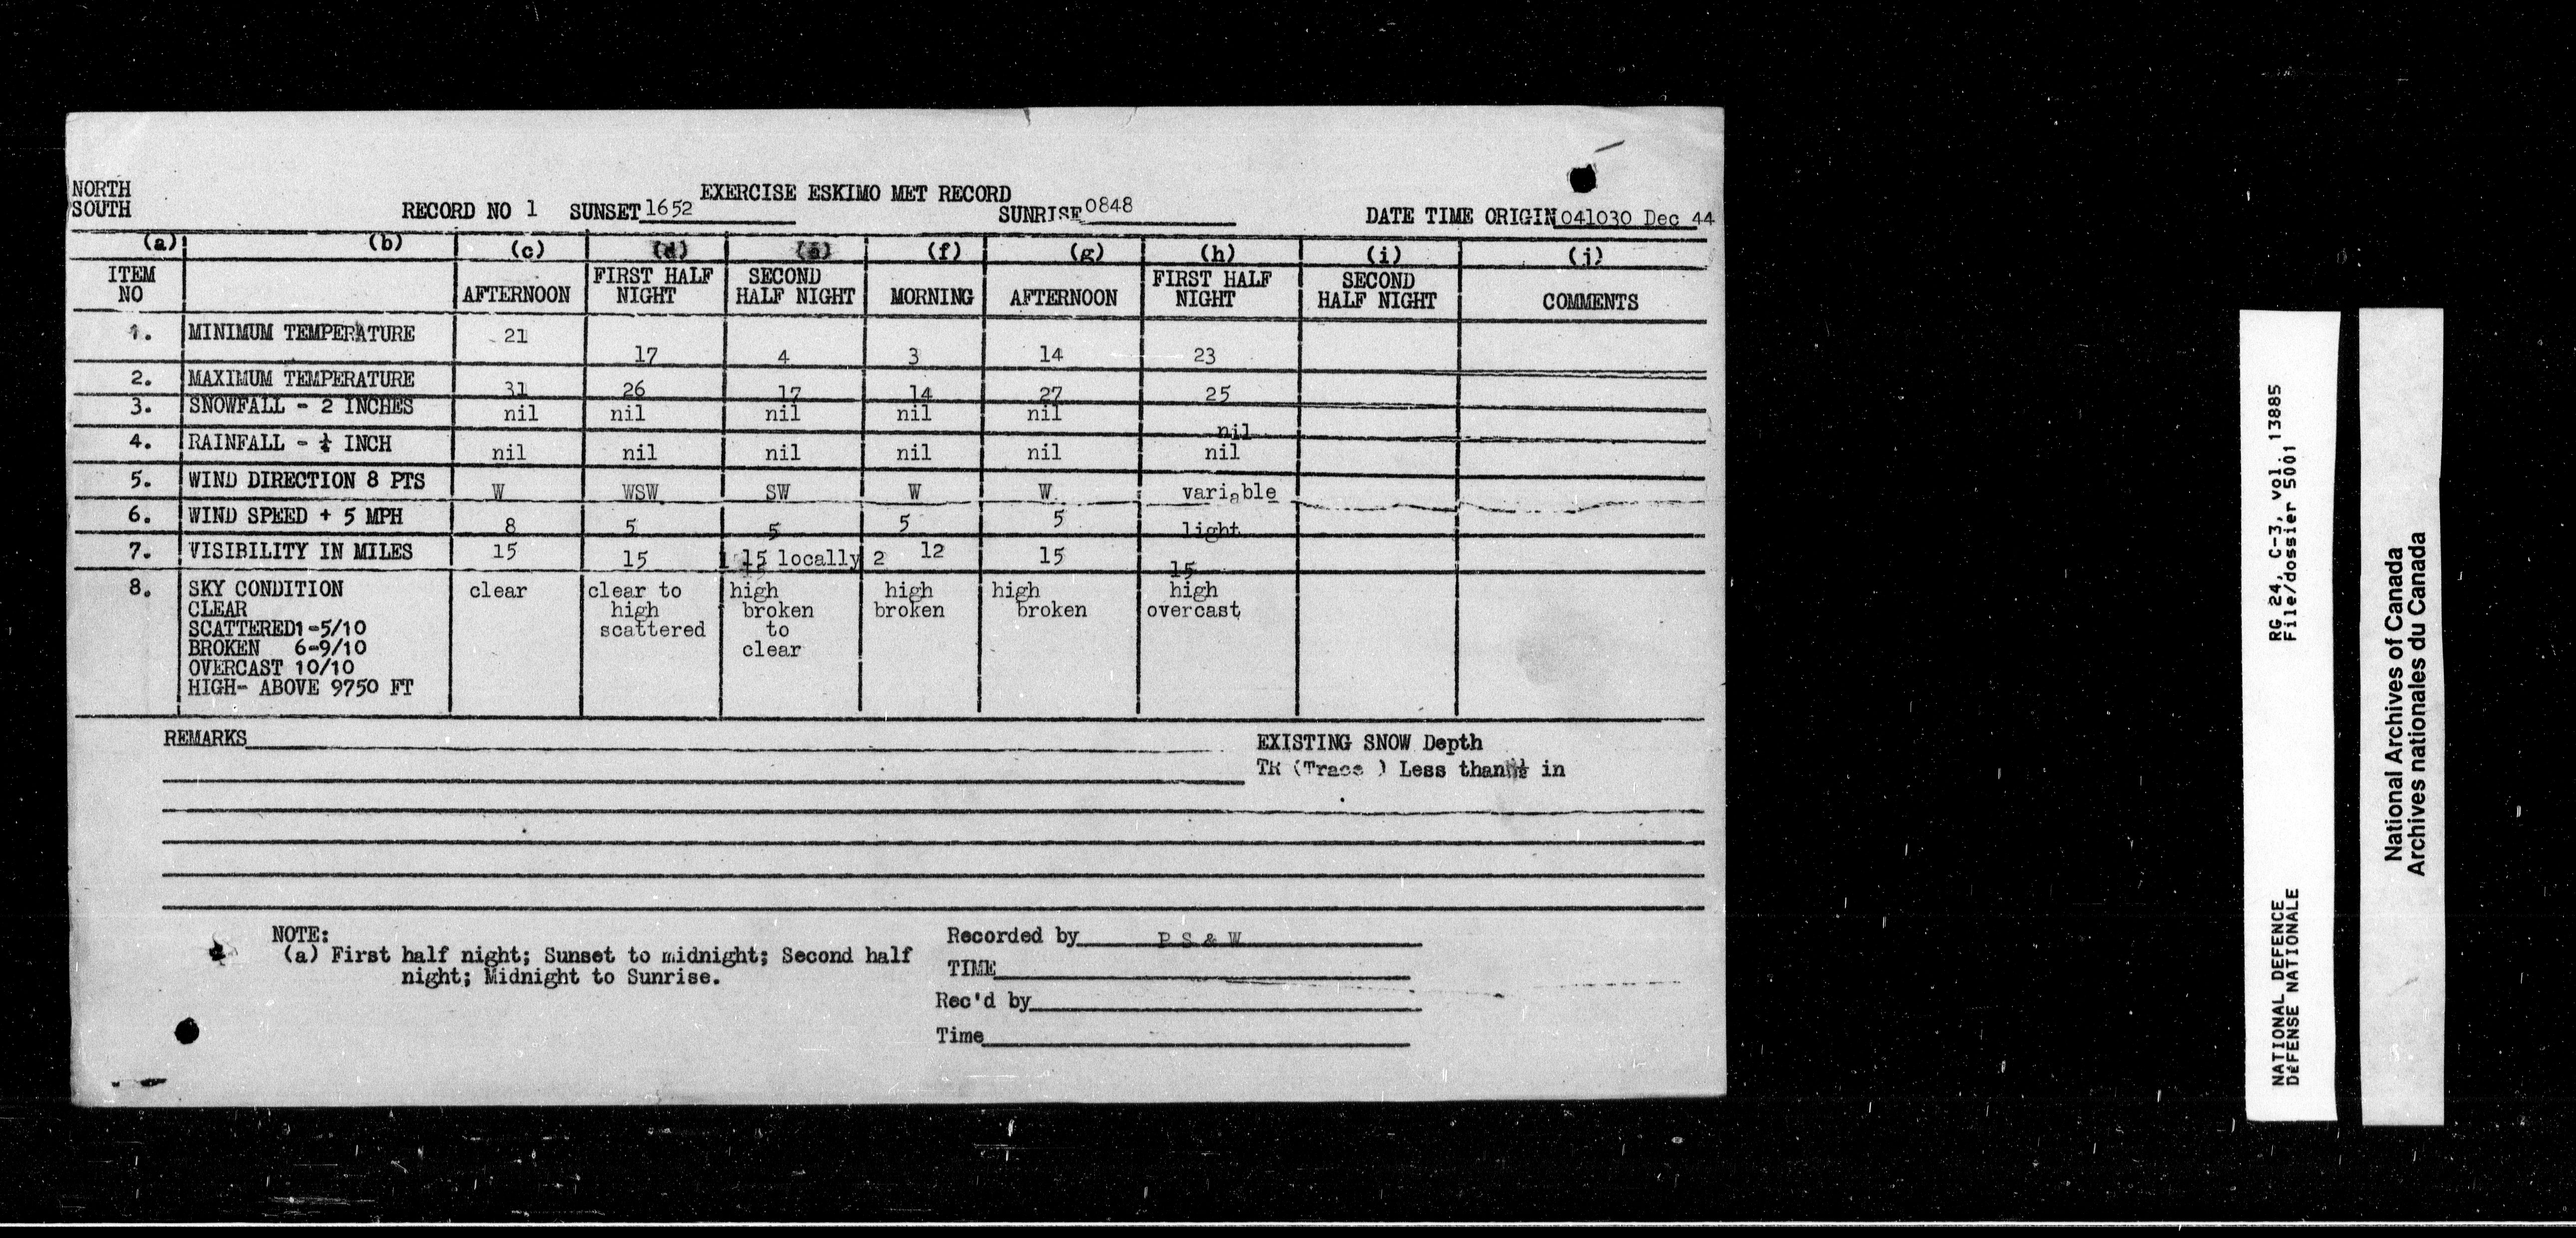 NORTH
SOUTH
EXERCISE ESKIMO MET RECORD
RECORD NO 1 SUNSET 1652 SUNRISE 0848 DATE TIME ORIGIN 041030 Dec 44
(a) (b) (c) (d) (e) (f) (g) (h) (i) (j)
ITEM NO AFTERNOON FIRST HALF NIGHT SECOND HALF NIGHT MORNING AFTERNOON FIRST HALF NIGHT SECOND HALF NIGHT COMMENTS
1. MINIMUM TEMPERATURE 21 17 4 3 14 23
2. MAXIMUM TEMPERATURE 31 26 17 14 27 25
3. SNOWFALL - 2 INCHES nil nil nil nil nil nil
4. RAINFALL - ¼ INCH nil nil nil nil nil nil
5. WIND DIRECTION 8 PTS W WSW SW W W variable
6. WIND SPEED + 5 MPH 8 5 5 5 5 light
7. VISIBILITY IN MILES 15 15 15 locally 2 12 15 15
8. SKY CONDITION clear clear to high high high high
CLEAR high broken broken broken overcast
SCATTERED 1-5/10 scattered to
BROKEN 6-9/10 clear
OVERCAST 10/10
HIGH- ABOVE 9750 FT
REMARKS
EXISTING SNOW Depth
TR (Trace ) Less than in
NOTE:
(a) First half night; Sunset to midnight; Second half
night; Midnight to Sunrise.
Recorded by P S & W
TIME
Rec'd by
Time
RG 24, C-3, vol. 13885
File/dossier 5001
NATIONAL DEFENCE
DÉFENSE NATIONALE
National Archives of Canada
Archives nationales du Canada